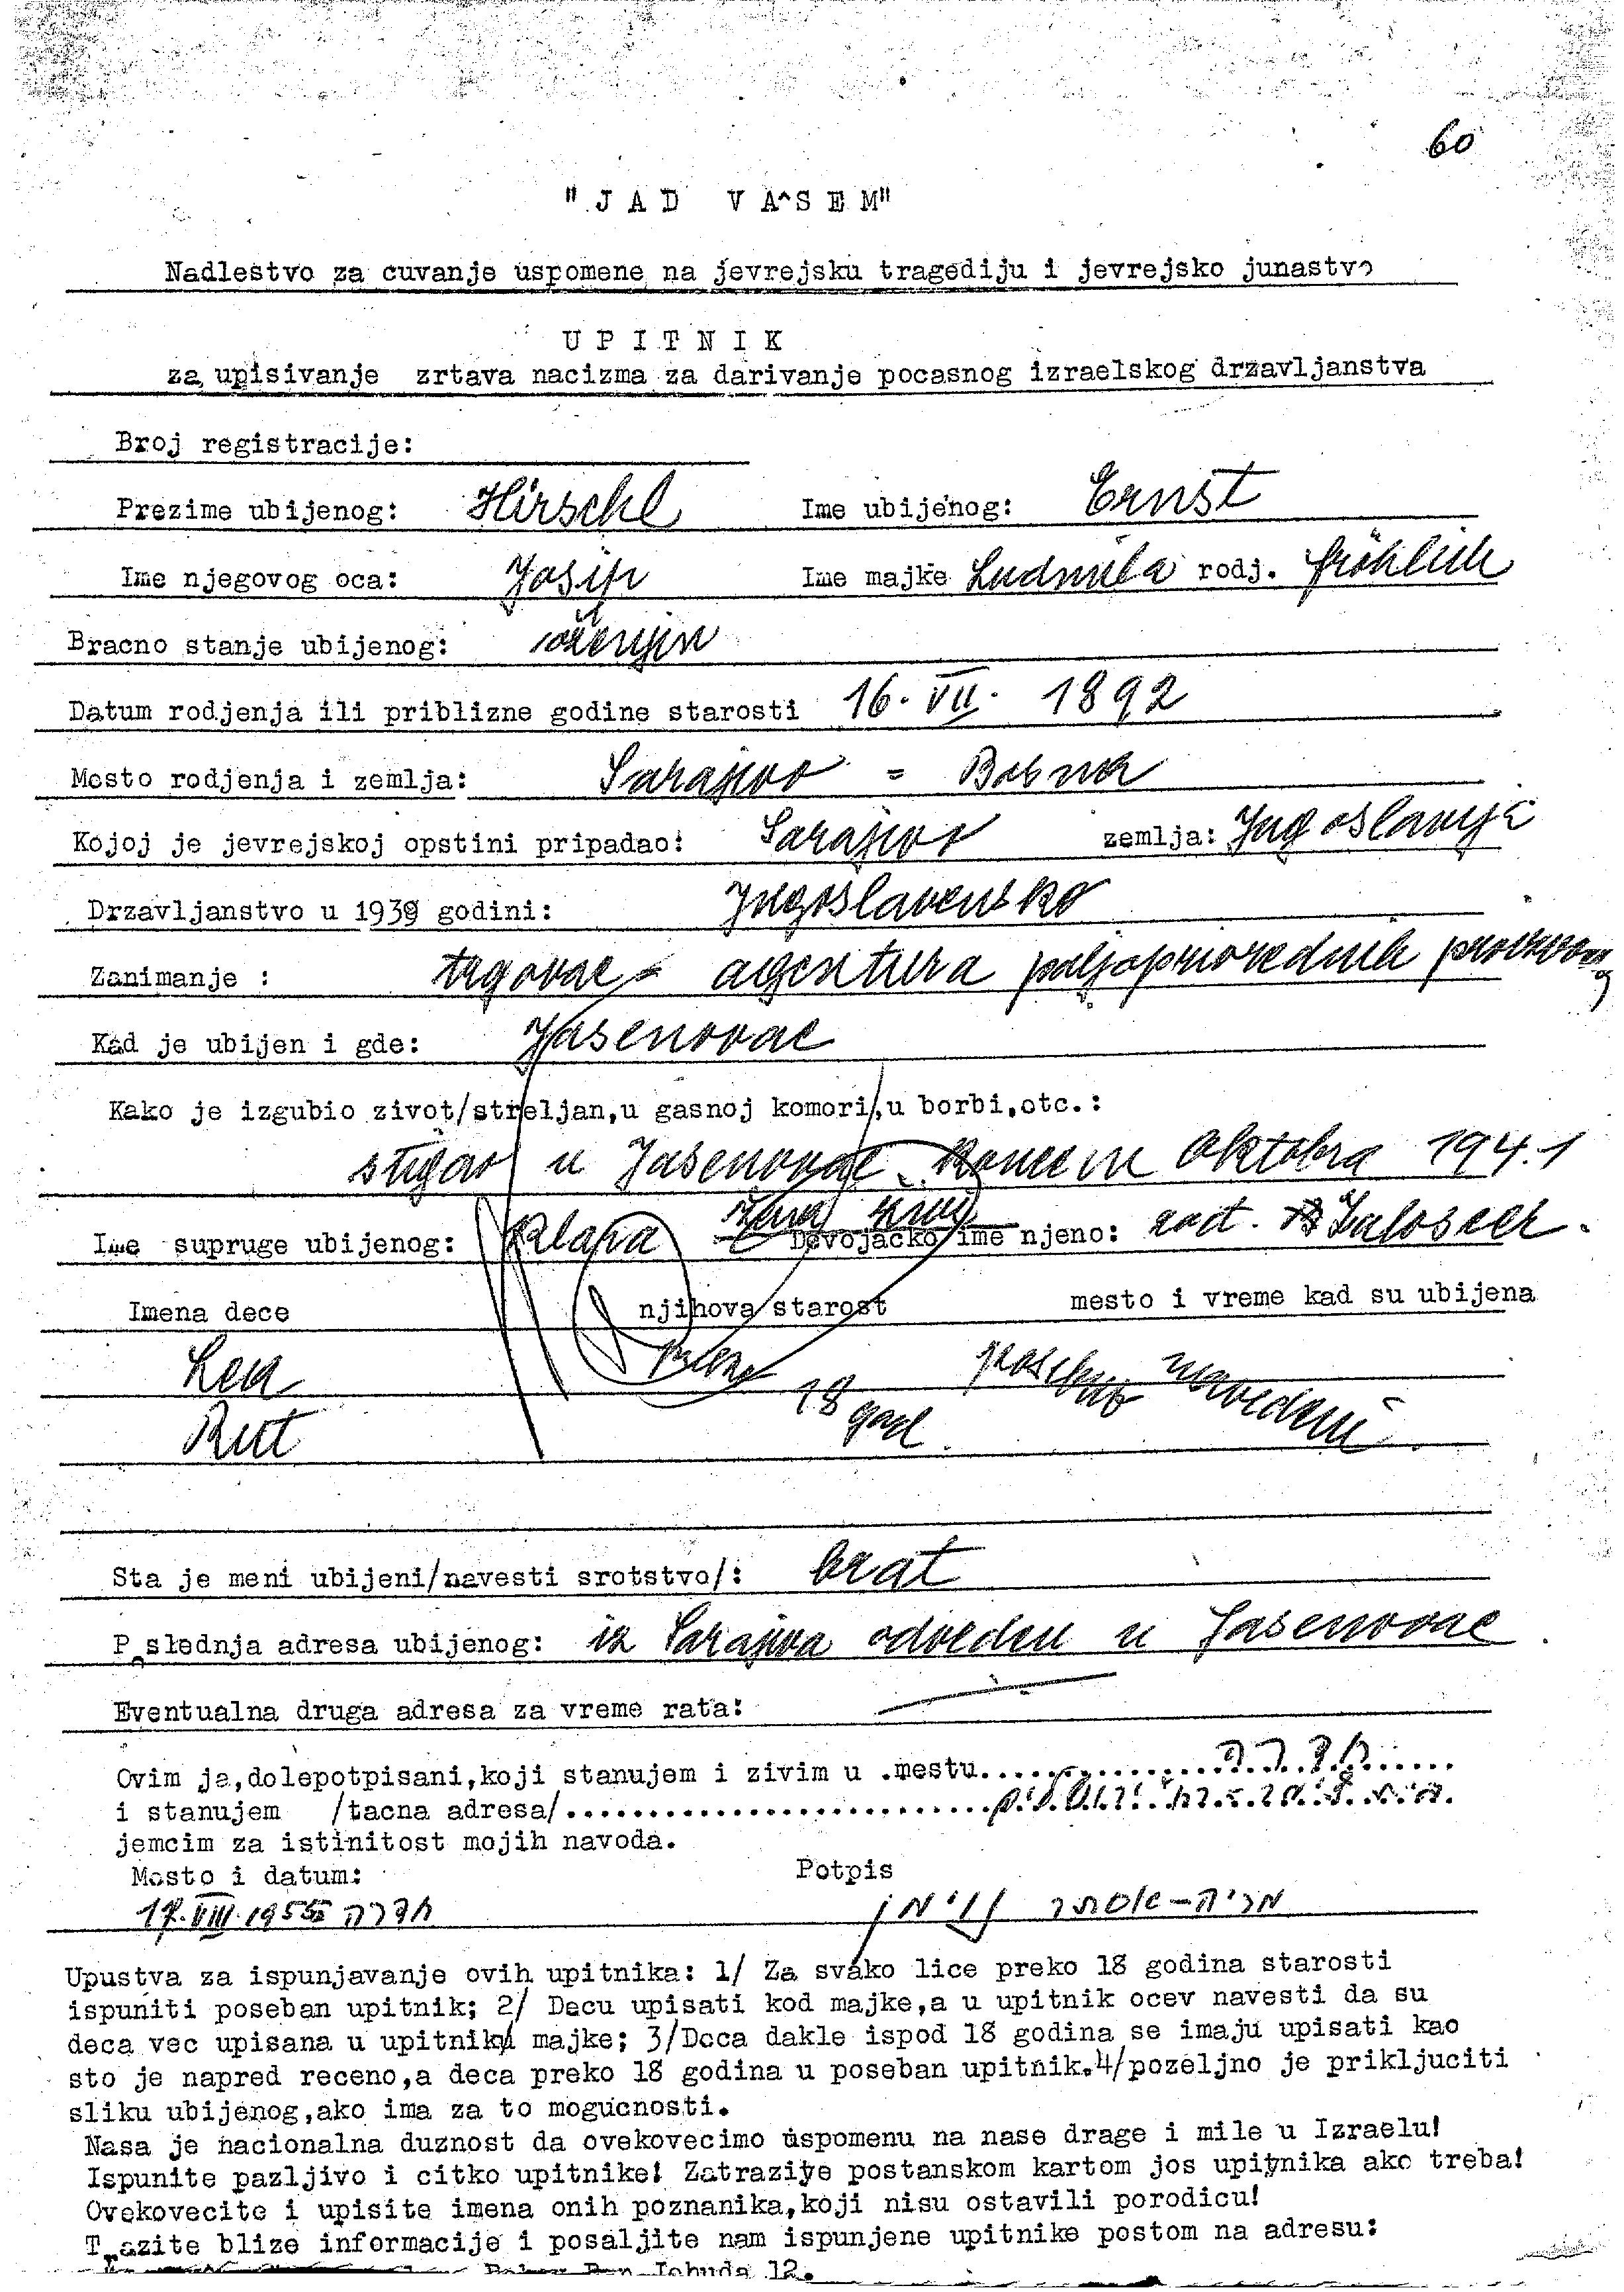 60
"JAD VA^SEM"
Nadlestvo za cuvanje uspomene na jevrejsku tragediju i jevrejsko junastvo
UPITNIK
za upisivanje zrtava nacizma za darivanje pocasnog izraelskog drzavljanstva
Broj registracije:
Prezime ubijenog: Hirschl Ime ubijenog: Ernst
Ime njegovog oca: Josip Ime majke Ludmila rodj. Fröhlich
Bracno stanje ubijenog: oženjen
Datum rodjenja ili priblizne godine starosti 16. VII. 1892
Mesto rodjenja i zemlja: Sarajevo = Bosna
Kojoj je jevrejskoj opstini pripadao: Sarajevo zemlja: Jugoslavija
Drzavljanstvo u 1939 godini: Jugoslavensko
Zanimanje : trgovac = agentura poljoprivrednih
Kad je ubijen i gde: Jasenovac
Kako je izgubio zivot/streljan,u gasnoj komori,u borbi,otc.:
stigao u Jasenovac koncem Oktobra 194.1
Ime supruge ubijenog: Klara Devojacko ime njeno: Zaloscer.
Imena dece njihova starost mesto i vreme kad su ubijena
Lea posebno navedeni
Rut 18 god.
Sta je meni ubijeni/navesti srotstvo/: brat
P slednja adresa ubijenog: iz Sarajeva odveden u Jasenovac
Eventualna druga adresa za vreme rata: —
Ovim ja,dolepotpisani,koji stanujem i zivim u .mestu.......חדרה......
i stanujem /tacna adresa/...........................
jemcim za istinitost mojih navoda.
Mesto i datum: Potpis
17.VIII.1955 חדרה
Upustva za ispunjavanje ovih upitnika: 1/ Za svako lice preko 18 godina starosti
ispuniti poseban upitnik; 2/ Decu upisati kod majke,a u upitnik ocev navesti da su
deca vec upisana u upitnik majke; 3/Deca dakle ispod 18 godina se imaju upisati kao
sto je napred receno,a deca preko 18 godina u poseban upitnik.4/pozeljno je prikljuciti
sliku ubijenog,ako ima za to mogucnosti.
Nasa je nacionalna duznost da ovekovecimo uspomenu na nase drage i mile u Izraelu!
Ispunite pazljivo i citko upitnike! Zatrazite postanskom kartom jos upitnika ako treba!
Ovekovecite i upisite imena onih poznanika,koji nisu ostavili porodicu!
T azite blize informacije i posaljite nam ispunjene upitnike postom na adresu:
Ben Jehuda 12.